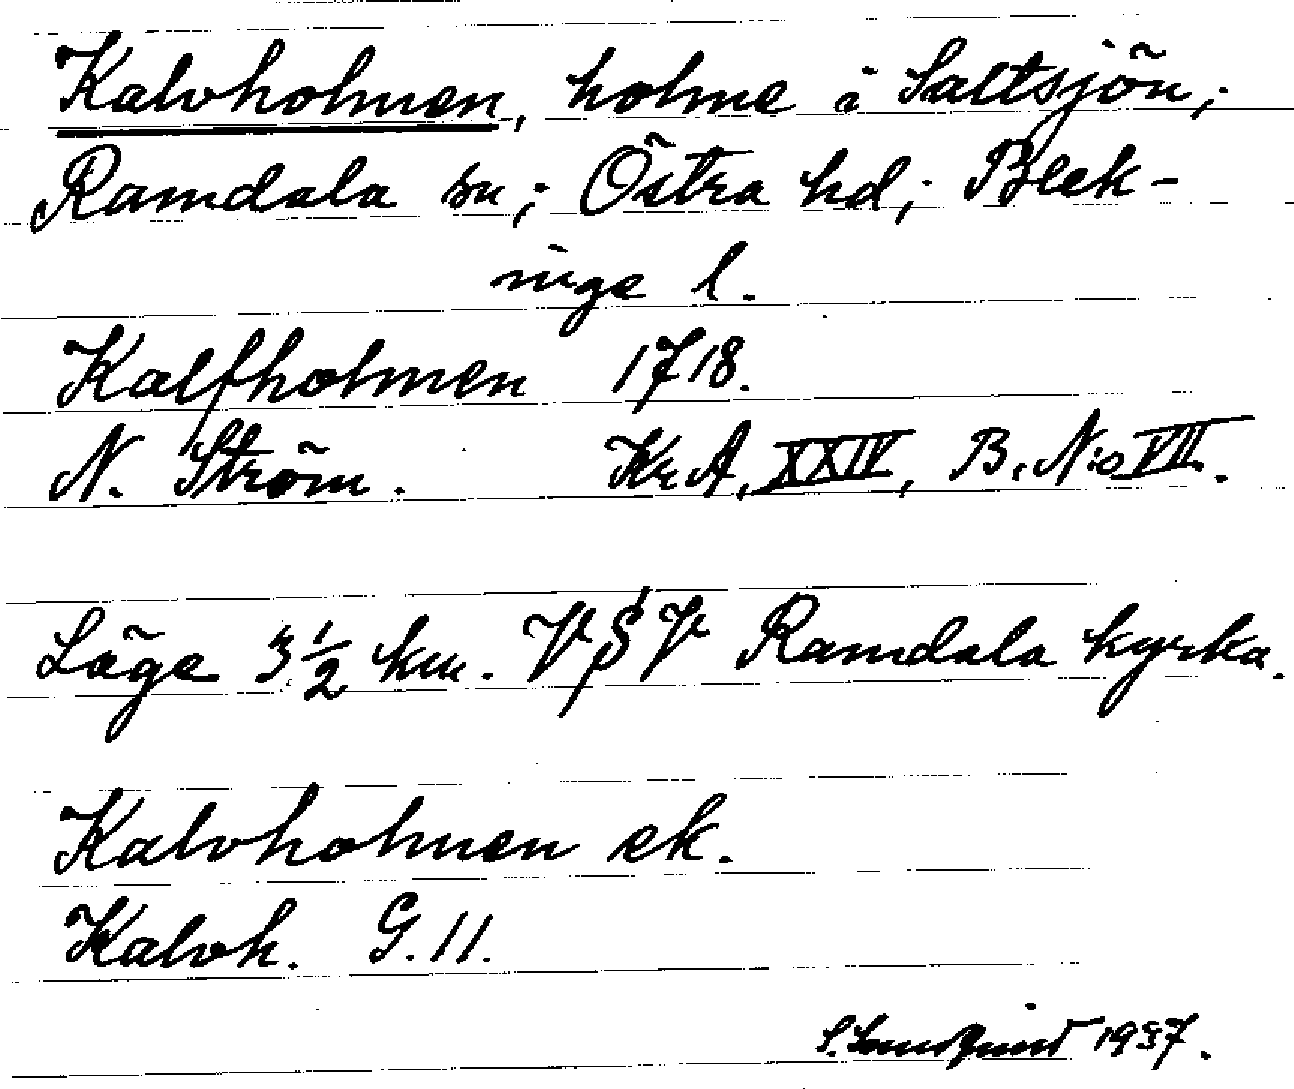 Kalvholmen, holme i Saltsjön;
Ramdala sn; Östra hd; Blek-
inge l.
Kalfholmen 1718.
N. Ström. Kr A, XXIV, B. No VII.
Läge 3 1/2 km. VSV Ramdala kyrka.
Kalvholmen ek.
Kalvh. G. 11.
1937.